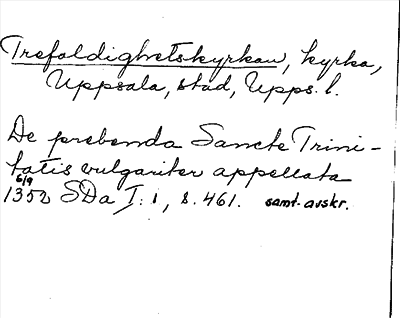 Trefaldighetskyrkan, kyrka,
Uppsala, stad, Upps. l.
De prebenda Sancte Trini-
tatis vulgariter appellata
6/9
1352 SDa I: 1, s. 461. samt. avskr.